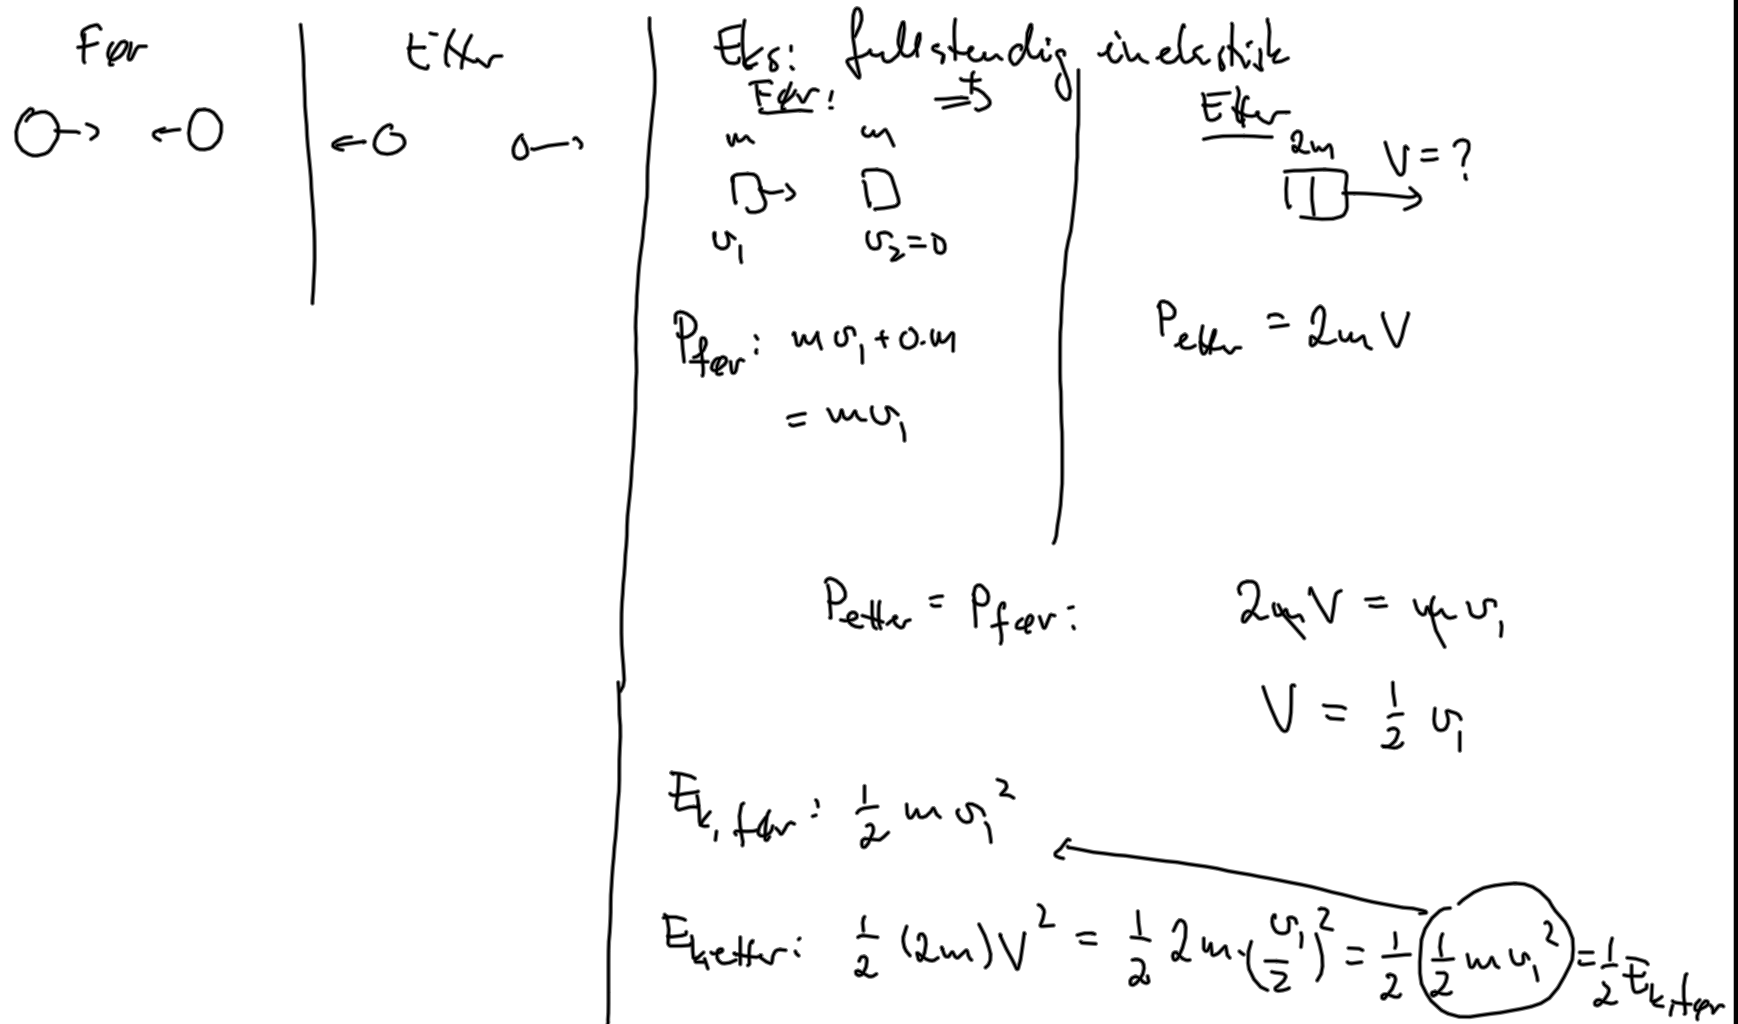 Før
Etter
Eks: fullstendig inelastisk
Før:
→+
m m
v₁ v₂=0
P_før: mv₁+0·m
= mv₁
Etter
2m V=?
P_etter = 2mV
P_etter = P_før: 2mV = mv₁
V = 1/2 v₁
E_k,før: 1/2 mv₁²
E_k,etter: 1/2 (2m)V² = 1/2 2m·(v₁/2)² = 1/2 (1/2 mv₁²) = 1/2 E_k,før